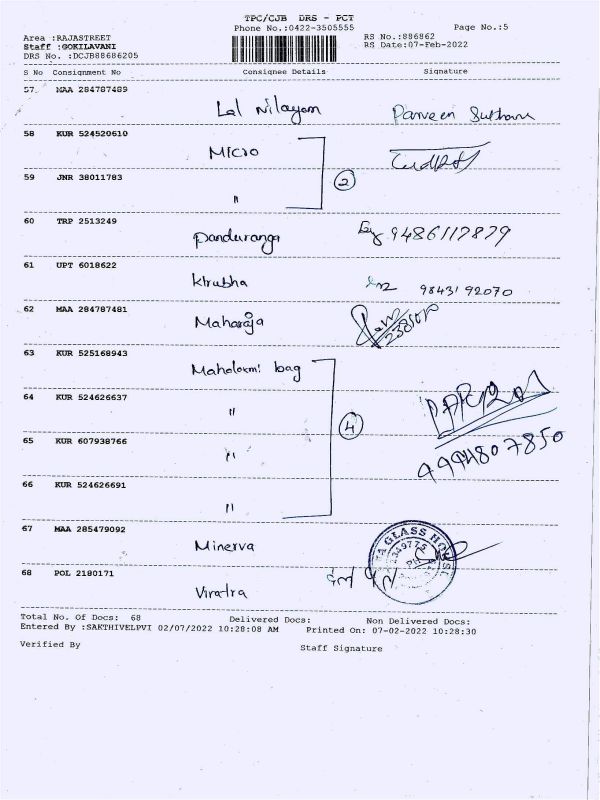 TPC/CJB DRS - PCT
Phone No.:0422-3505555
Page No.:5
Area :RAJASTREET
RS No.:886862
Staff :GOKILAVANI
RS Date:07-Feb-2022
DRS No. :DCJB88686205
S No Consignment No Consignee Details Signature
57 MAA 284787489
Lal Nilayam Parveen Suthar
58 KUR 524520610
Micro
59 JNR 38011783
2
"
60 TRP 2513249
Panduranga 9486117879
61 UPT 6018622
Khubha 98431 92070
62 MAA 284787481
Maharaja
63 KUR 525168943
Mahalaxmi bag
64 KUR 524626637
"
4
65 KUR 607938766
" 9994807850
66 KUR 524626691
"
67 MAA 285479092
Minerva
GLASS HOUSE
68 POL 2180171
Total No. Of Docs: 68 Delivered Docs: Non Delivered Docs:
Entered By :SAKTHIVELPVI 02/07/2022 10:28:08 AM Printed On: 07-02-2022 10:28:30
Verified By Staff Signature